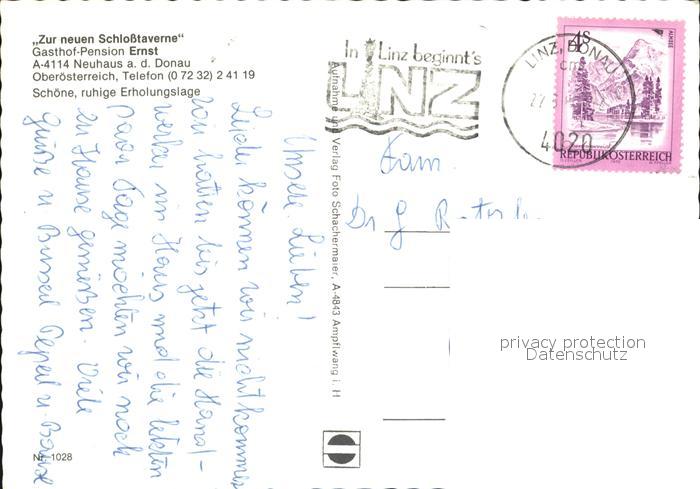 „Zur neuen Schloßtaverne“
Gasthof-Pension Ernst
A-4114 Neuhaus a. d. Donau
Oberösterreich, Telefon (0 72 32) 2 41 19
Schöne, ruhige Erholungslage
In Linz beginnt's
LINZ
LINZ, DONAU
4020
4 S
ALMSEE
REPUBLIK ÖSTERREICH
Aufnahme und Verlag Foto Schachermaier, A-4843 Ampflwang i. H
Fam.
Dr G
Unsere Lieben!
Leider können wir nicht kommen
wir hatten bis jetzt die Hand-
werker im Haus und die letzten
paar Tage möchten wir noch
zu Hause genießen. Viele
Grüße u. Busserl
privacy protection
Datenschutz
Nr. 1028